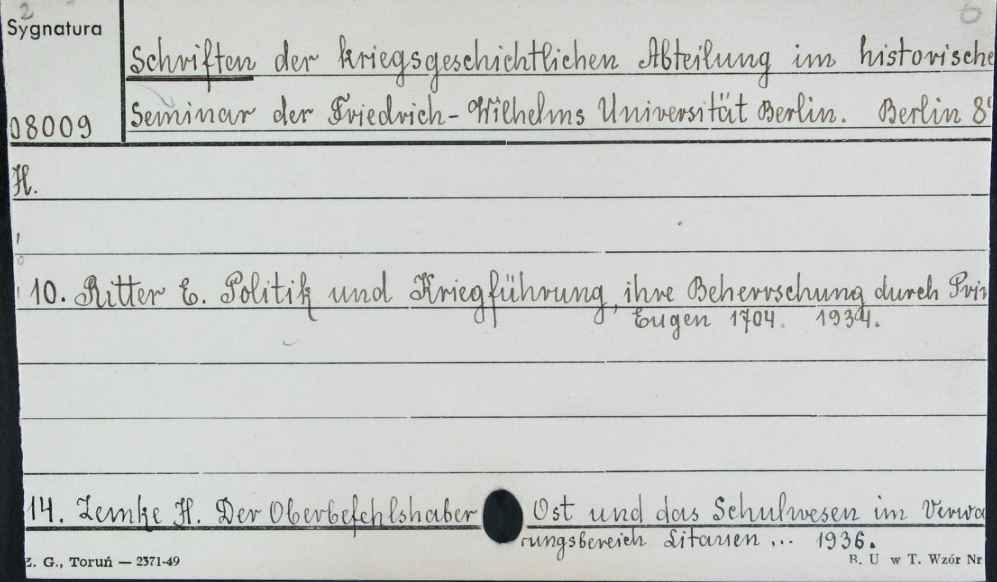 2
6
Sygnatura
Schriften der kriegsgeschichtlichen Abteilung im historische
Seminar der Friedrich-Wilhelms Universität Berlin. Berlin 8°
08009
H.
10. Ritter E. Politik und Kriegführung, ihre Beherrschung durch Prin
Eugen 1704. 1934.
14. Zemke H. Der Oberbefehlshaber Ost und das Schulwesen im Verwa
rungsbereich Litauen... 1936.
Z. G., Toruń — 2371-49
B. U w T. Wzór Nr